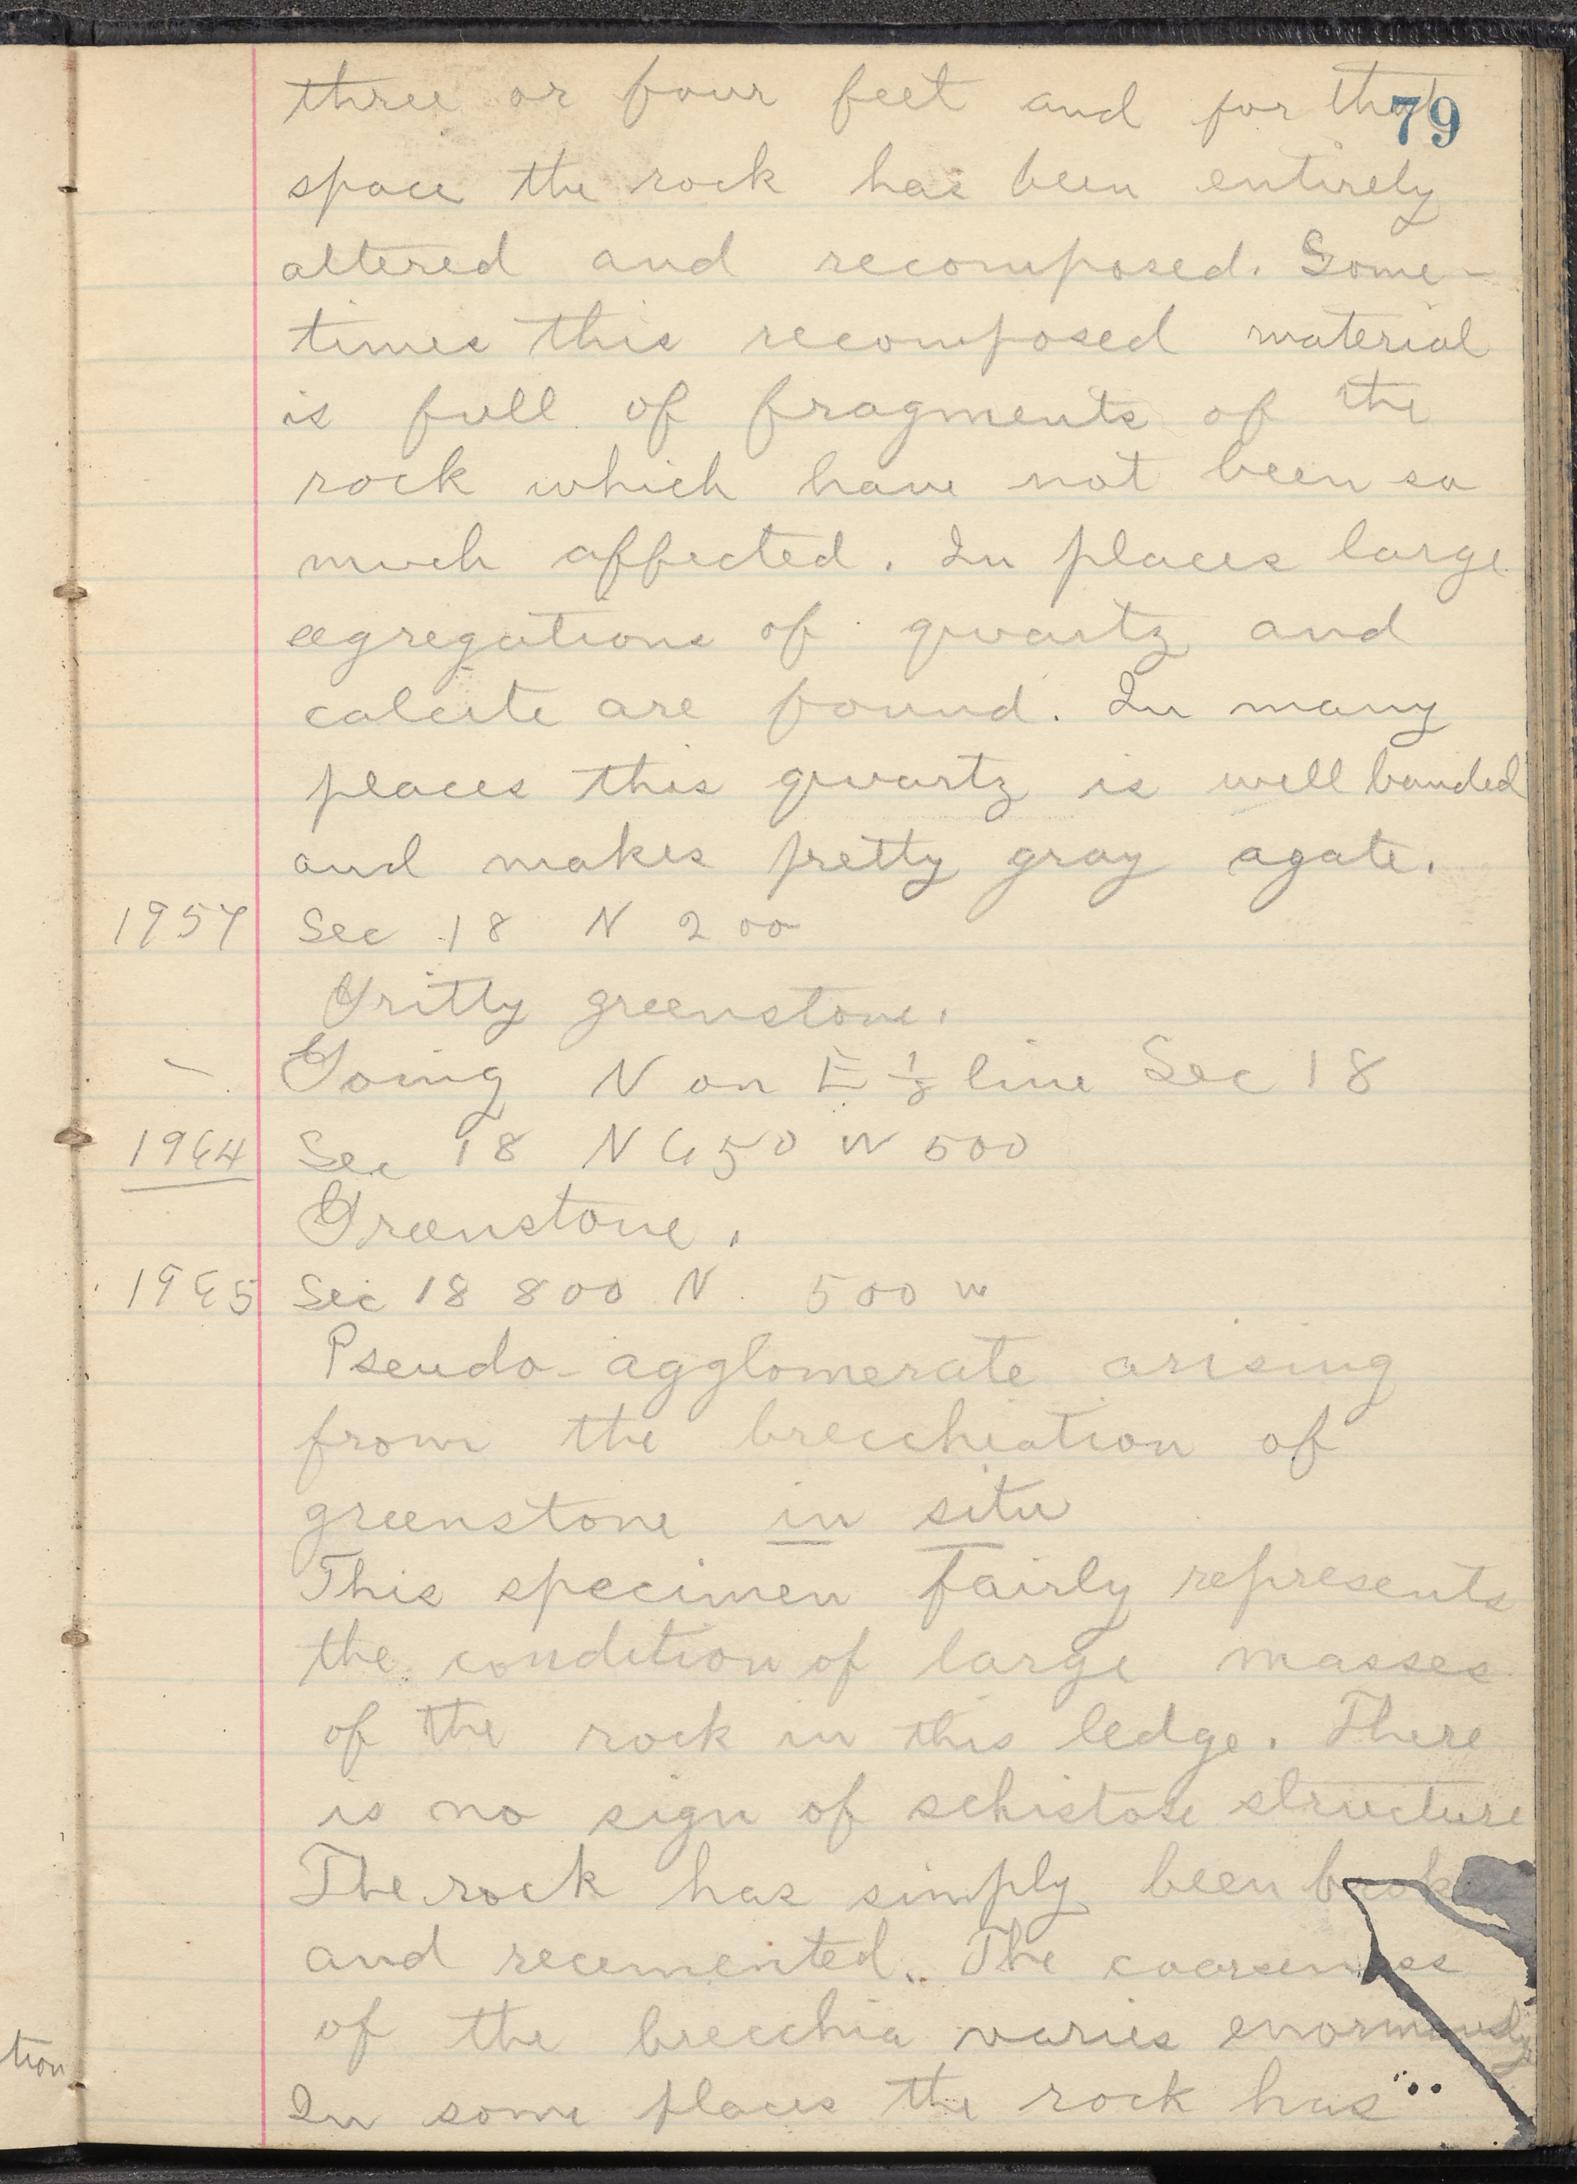 79
three or four feet and for that
space the rock has been entirely
altered and recomposed. Some-
times this recomposed material
is full of fragments of the
rock which have not been so
much affected. In places large
egregations of quartz and
calcite are found. In many
places this quartz is well banded
and makes pretty gray agate.
1957 Sec 18 N 200
Gritty greenstone.
Going N on E 1/8 line Sec 18
1964 Sec 18 N 650 W 500
Greenstone.
1965 Sec 18 800 N 500 W
Pseudo-agglomerate arising
from the brecchiation of
greenstone in situ
This specimen fairly represents
the condition of large masses
of the rock in this ledge. There
is no sign of schistose structure
The rock has simply been
and recemented. The coarseness
of the brecchia varies enormously
tion
In some places the rock has